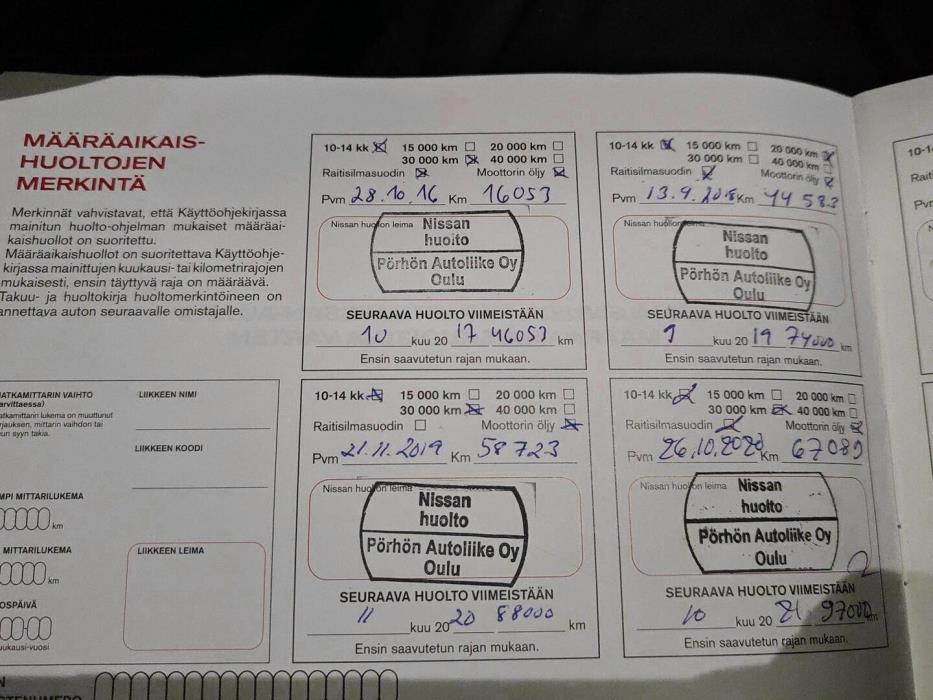 MÄÄRÄAIKAIS-
HUOLTOJEN
MERKINTÄ
Merkinnät vahvistavat, että Käyttöohjekirjassa
mainitun huolto-ohjelman mukaiset määräai-
kaishuollot on suoritettu.
Määräaikaishuollot on suoritettava Käyttöohje-
kirjassa mainittujen kuukausi- tai kilometrirajojen
mukaisesti, ensin täyttyvä raja on määräävä.
Takuu- ja huoltokirja huoltomerkintöineen on
annettava auton seuraavalle omistajalle.
10-14 kk 15 000 km 20 000 km
30 000 km 40 000 km
Raitisilmasuodin Moottorin öljy
Pvm 28.10.16 Km 16053
Nissan huollon leima
Nissan
huolto
Pörhön Autoliike Oy
Oulu
SEURAAVA HUOLTO VIIMEISTÄÄN
10 kuu 20 17 46053 km
Ensin saavutetun rajan mukaan.
10-14 kk 15 000 km 20 000 km
30 000 km 40 000 km
Raitisilmasuodin Moottorin öljy
Pvm 13.9.2018 Km 44 583
Nissan huollon leima
Nissan
huolto
Pörhön Autoliike Oy
Oulu
SEURAAVA HUOLTO VIIMEISTÄÄN
9 kuu 20 19 74000 km
Ensin saavutetun rajan mukaan.
10-14 kk 15 000 km 20 000 km
30 000 km 40 000 km
Raitisilmasuodin Moottorin öljy
Pvm 21.11.2019 Km 58 723
Nissan huollon leima
Nissan
huolto
Pörhön Autoliike Oy
Oulu
SEURAAVA HUOLTO VIIMEISTÄÄN
11 kuu 20 20 88000 km
Ensin saavutetun rajan mukaan.
10-14 kk 15 000 km 20 000 km
30 000 km 40 000 km
Raitisilmasuodin Moottorin öljy
Pvm 26.10.2020 Km 67089
Nissan huollon leima
Nissan
huolto
Pörhön Autoliike Oy
Oulu
SEURAAVA HUOLTO VIIMEISTÄÄN
10 kuu 20 21 97000 km
Ensin saavutetun rajan mukaan.
ATKAMITTARIN VAIHTO
arvittaessa)
atkamittarin lukema on muuttunut
rjauksen, mittarin vaihdon tai
un syyn takia.
MPI MITTARILUKEMA
km
MITTARILUKEMA
km
OSPÄIVÄ
uukausi-vuosi
LIIKKEEN NIMI
LIIKKEEN KOODI
LIIKKEEN LEIMA
10-1
Rait
Pvr